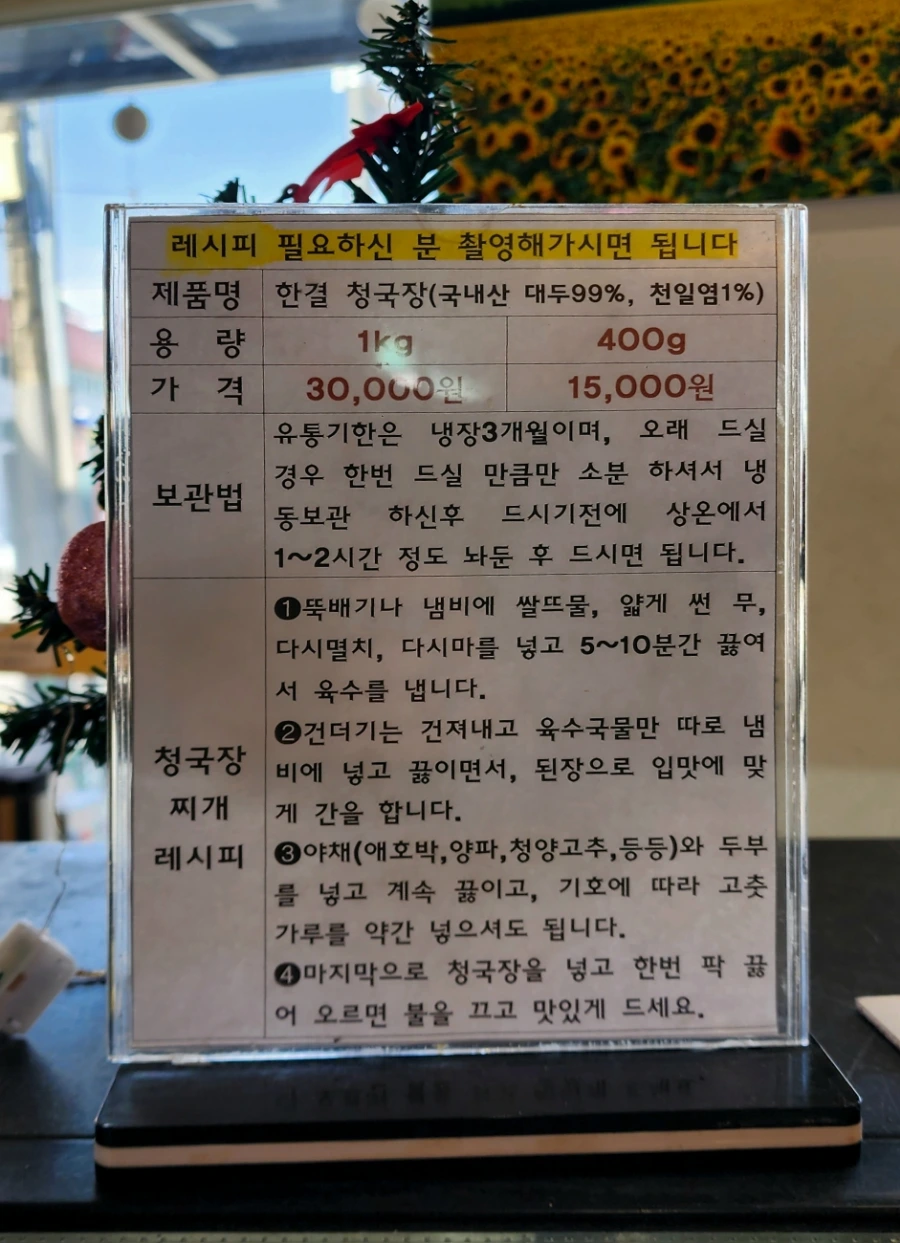 레시피 필요하신 분 촬영해가시면 됩니다
제품명 한결 청국장(국내산 대두99%, 천일염1%)
용 량 1kg 400g
가 격 30,000원 15,000원
보관법
유통기한은 냉장3개월이며, 오래 드실
경우 한번 드실 만큼만 소분 하셔서 냉
동보관 하신후 드시기전에 상온에서
1~2시간 정도 놔둔 후 드시면 됩니다.
청국장
찌개
레시피
❶뚝배기나 냄비에 쌀뜨물, 얇게 썬 무,
다시멸치, 다시마를 넣고 5~10분간 끓여
서 육수를 냅니다.
❷건더기는 건져내고 육수국물만 따로 냄
비에 넣고 끓이면서, 된장으로 입맛에 맞
게 간을 합니다.
❸야채(애호박,양파,청양고추,등등)와 두부
를 넣고 계속 끓이고, 기호에 따라 고춧
가루를 약간 넣으셔도 됩니다.
❹마지막으로 청국장을 넣고 한번 팍 끓
어 오르면 불을 끄고 맛있게 드세요.